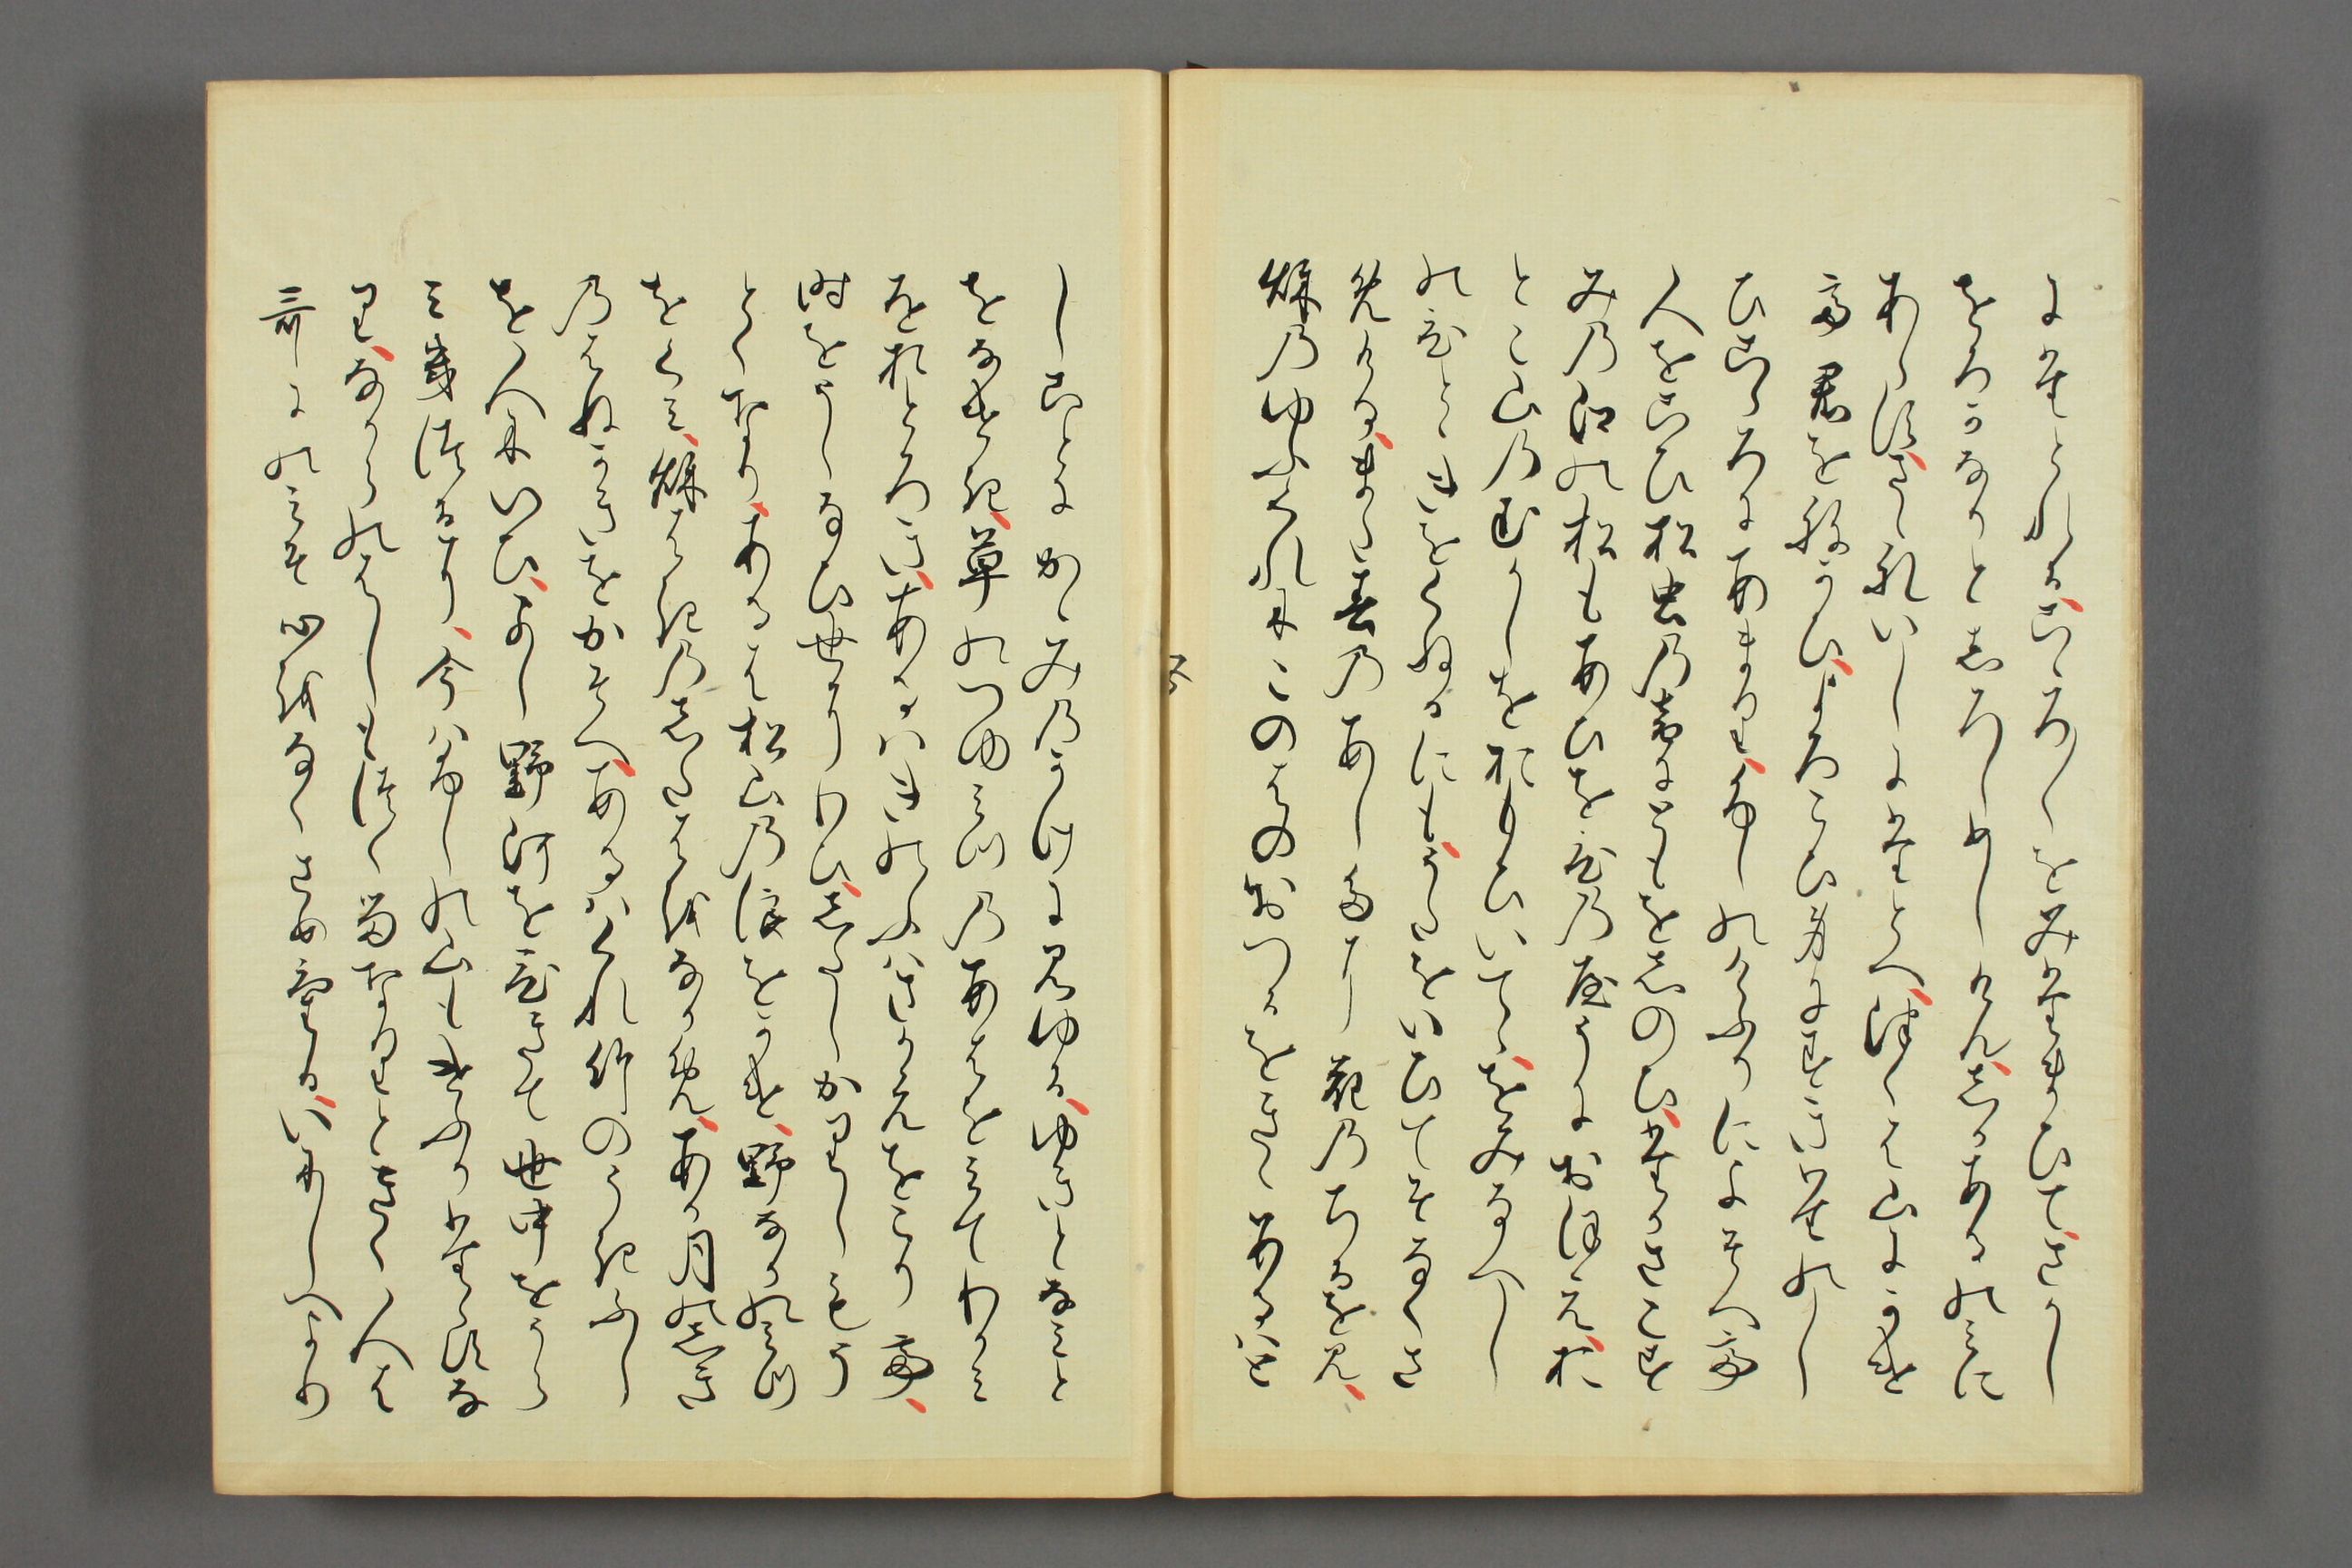 にたとれる心〻ろ〳〵をみたまひてさかし
をろかなりとしろしめしけんしかあるのみに
あらすさゝれいしにたとへつくは山にかけて
君をねかひよろこひ身にすきたのし
ひこゝろにあまりふしのけふりによそへて
人をこひ松虫のねにともをしのひたかさこす
みの江の松もあひをひのやうにおほえお
とこ山のむかしをおもひいてゝをみなへし
のひとゝきをくねるにもうたをいひてそなくさ
めけるまた春のあしたに花のちるを見
秋のゆふくれにこのはのおつるをきゝあるはと
しことにかゝみのかけに見ゆるゆきとなみと
をなけき草のつゆみつのあわをみてわかみ
をおとろきあるはきのふはさかえをこりて
時をうしなひ世にわひしたしかりしもう
とくなりあるは松山の浪をかけ野なかのみつ
をくみ秋はきのしたはをなかめあか月のしき
のはねかきをかそへあるはくれ竹のうきふし
を人にいひよしの河をひきて世中をうら
みきつるに今はふしの山もけふりたゝすな
りなからのはしもつくるなりときく人は
哥にのみそ心をなくさめけるいにしへより